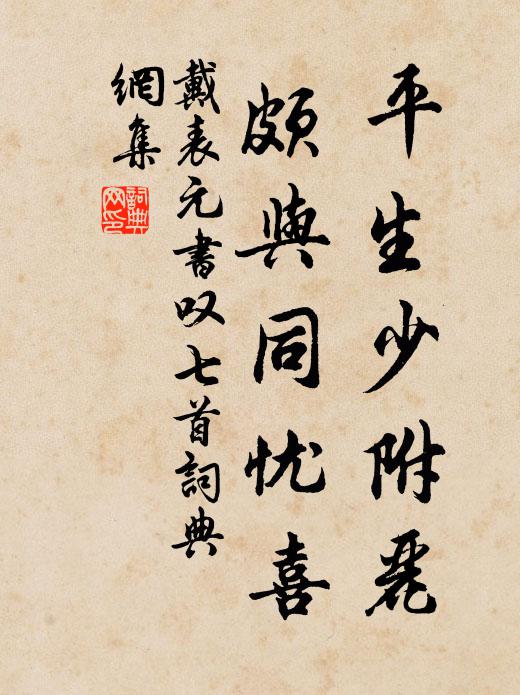 平生少附麗
頗與同忧喜
戴表元書叹七首詞典
網集
詞典
网印